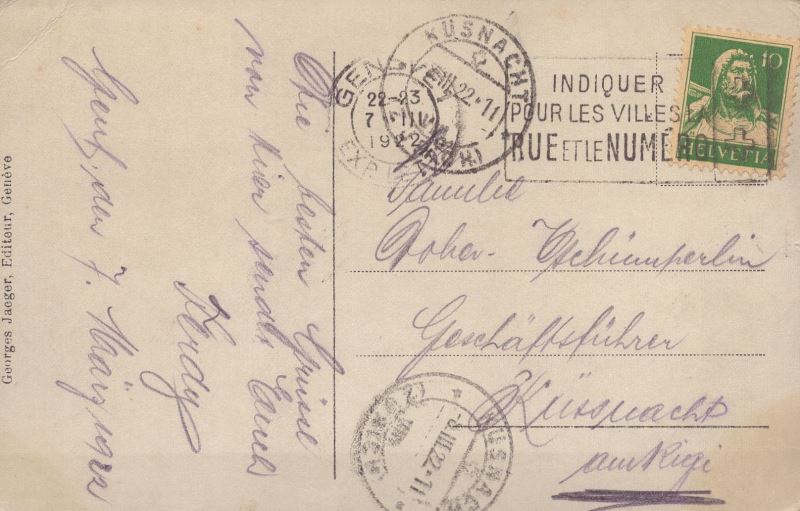 Genf, den 7. März 1922
Die besten Grüsse
von hier sendet Euch
Ferdy
Georges Jaeger, Editeur, Genève
GENÈVE 1
22-23
7 III
1922
EXP. LET.
KÜSNACHT
III.22-11
(SCHWYZ)
INDIQUER
POUR LES VILLES LA
RUE ET LE NUMÉRO
10
HELVETIA
Familie
Dober-Tschümperlin
Geschäftsführer
Küssnacht
am Rigi
KÜSNACHT
-8.III.22-11
(SCHWYZ)